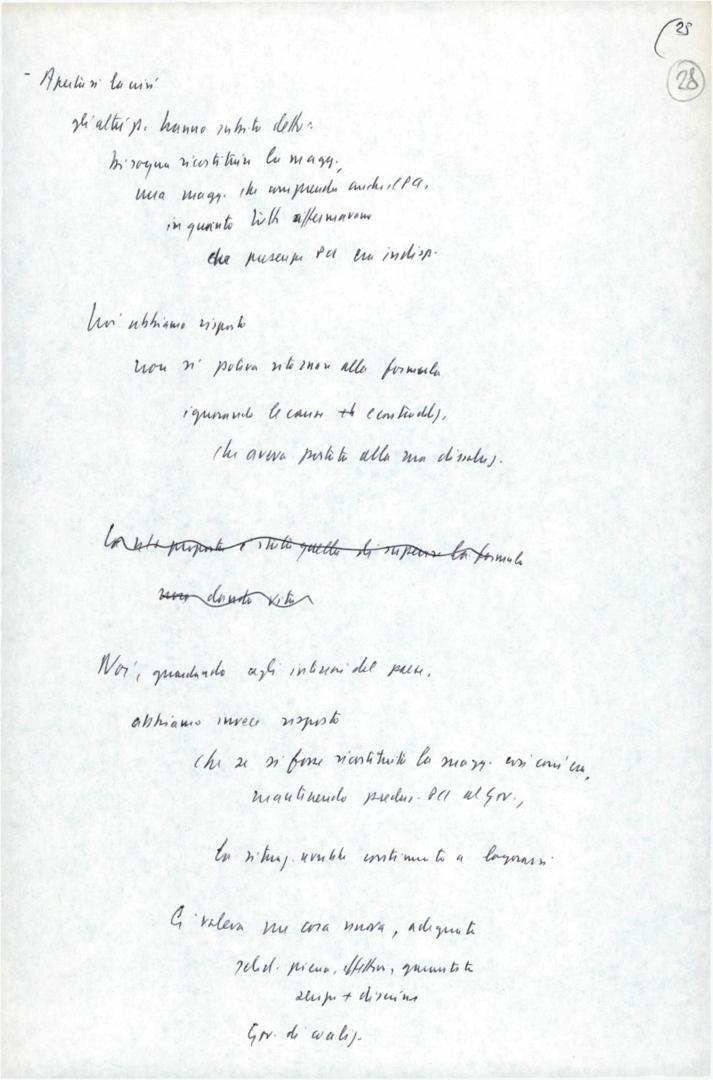 25
28
- Apertasi la crisi
gli altri p. hanno subito detto:
bisogna ricostituire la magg.,
una magg. che comprenda anche il PCI,
in quanto tutti affermavano
che presenza PCI era indisp.
Noi abbiamo risposto
non si poteva ritornare alla formula
ignorando le cause e contradd.,
che aveva portato alla sua dissoluz.
La proposta è stata quella di superare la formula
dando vita
Noi, guardando agli interessi del paese,
abbiamo invece risposto
che se si fosse ricostituita la magg. così com'era,
mantenendo preclus. PCI al Gov.,
la situaz. avrebbe continuato a logorarsi
Ci voleva una cosa nuova, adeguata
solid. piena, effettiva, garantita
senza + discrim.
Gov. di coaliz.